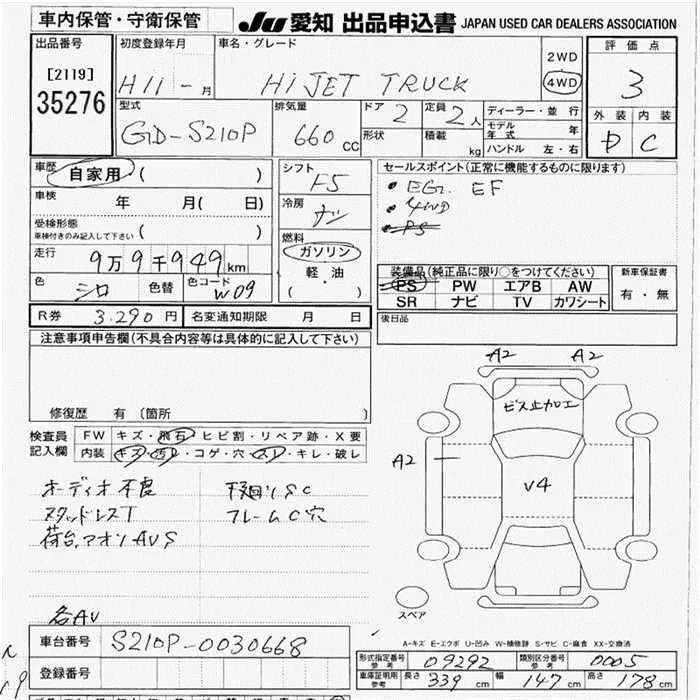 車内保管・守衛保管 JU 愛知 出品申込書 JAPAN USED CAR DEALERS ASSOCIATION
出品番号 初度登録年月 車名・グレード 評価点
[2119] 2WD
35276 H11 - 月 Hi JET TRUCK 4WD 3
型式 排気量 ドア 2 定員 2人 ディーラー・並行 外装 内装
GD-S210P 660 CC 形状 積載 kg モデル年式 年 C
ハンドル 左・右
車歴 自家用 ( ) シフト F5 セールスポイント(正常に機能するものに限ります)
車検 年 月( 日) 冷房 ナシ • EGI. EF
受検形態 • 4WD
車検付きのみ記入して下さい ( ) 燃料 • PS
走行 9万9千949km ガソリン
軽・油 装備品(純正品に限り○をつけてください) 新車保証書
色 シロ 色替 色コード W09 ( ) PS PW エアB AW 有・無
SR ナビ TV カワシート
R券 3.290円 名変通知期限 月 日 後日品
注意事項申告欄(不具合内容等は具体的に記入して下さい)
A2 A2
ビス止加工
修復歴 有 〔箇所 〕
検査員 FW キズ・飛石・ヒビ割・リペア跡・X要
記入欄 内装 キズ・汚レ・コゲ・穴・スレ・キレ・破レ
A2
V4
オーディオ不良 下廻りSC
スタッドレスT フレームC穴
荷台.アオリAVS
スペア
各AV
A-キズ E-エクボ U-凹み W-補修跡 S-サビ C-腐食 XX-交換済
車台番号 S210P-0030668
形式指定番号 参考 09292 類別区分番号 参考 0005
登録番号 車庫証明用 参考 長さ 339 cm 幅 147 cm 高さ 178 cm